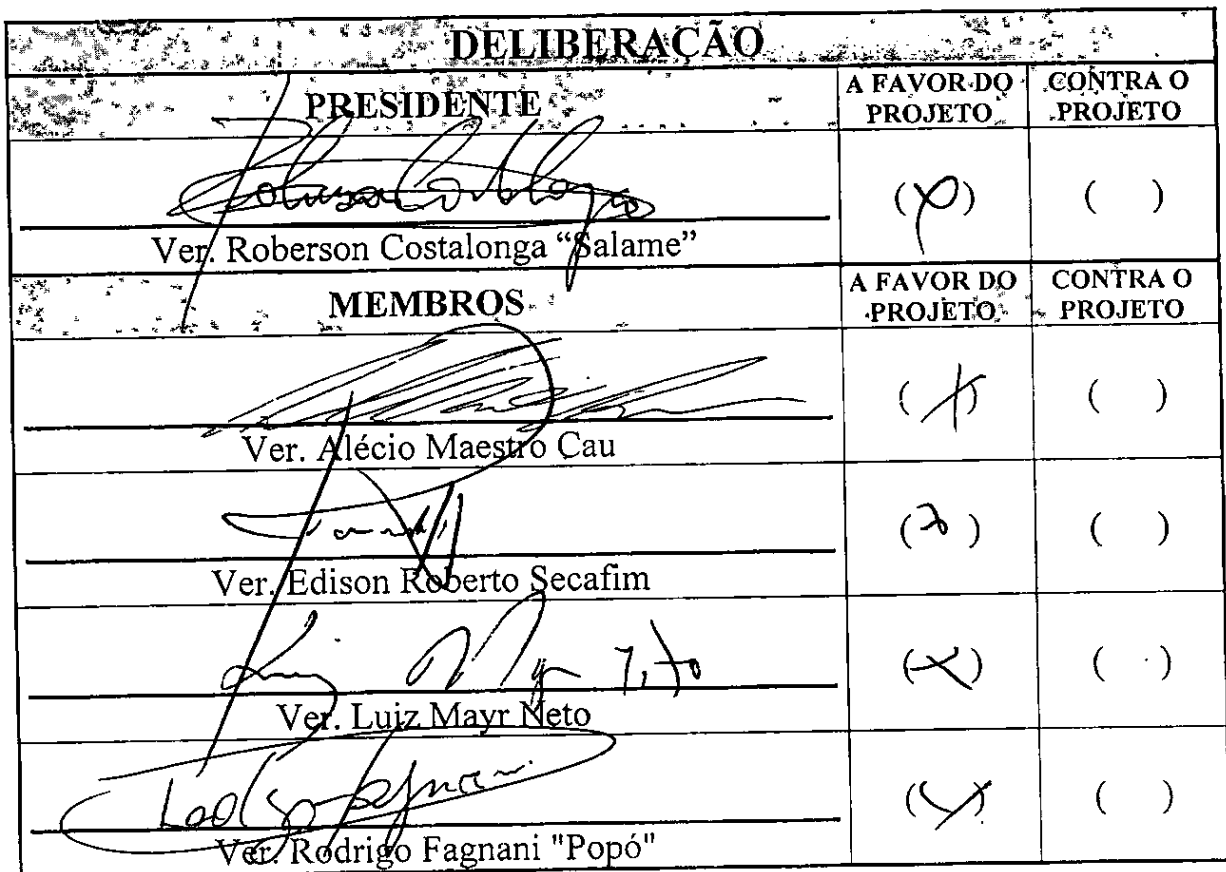 DELIBERAÇÃO
PRESIDENTE A FAVOR DO PROJETO CONTRA O PROJETO
( ) ( )
Ver. Roberson Costalonga “Salame”
MEMBROS A FAVOR DO PROJETO CONTRA O PROJETO
(X) ( )
Ver. Alécio Maestro Cau
( ) ( )
Ver. Edison Roberto Secafim
Luiz Mayr Neto (X) ( )
Ver. Luiz Mayr Neto
Rodrigo Fagnani (X) ( )
Ver. Rodrigo Fagnani "Popó"